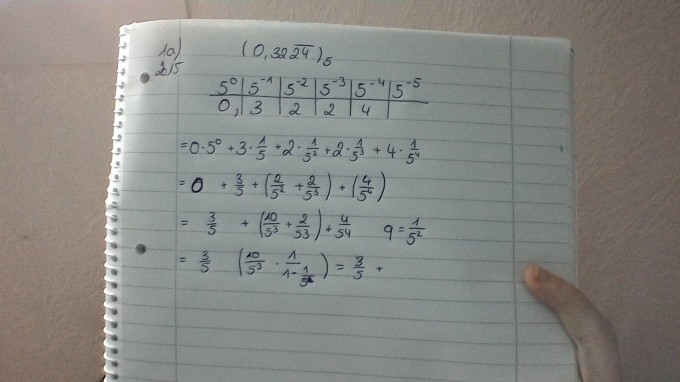 1a)
2015
(0,32\overline{24})₅
5⁰ | 5⁻¹ | 5⁻² | 5⁻³ | 5⁻⁴ | 5⁻⁵
0, | 3 | 2 | 2 | 4 |
= 0·5⁰ + 3·1/5 + 2·1/5² + 2·1/5³ + 4·1/5⁴
= 0 + 3/5 + (2/5² + 2/5³) + (4/5⁴)
= 3/5 + (10/5³ + 2/53) + 4/54 q = 1/5²
= 3/5 (10/5³ · 1/(1 - 1/5)) = 3/5 +